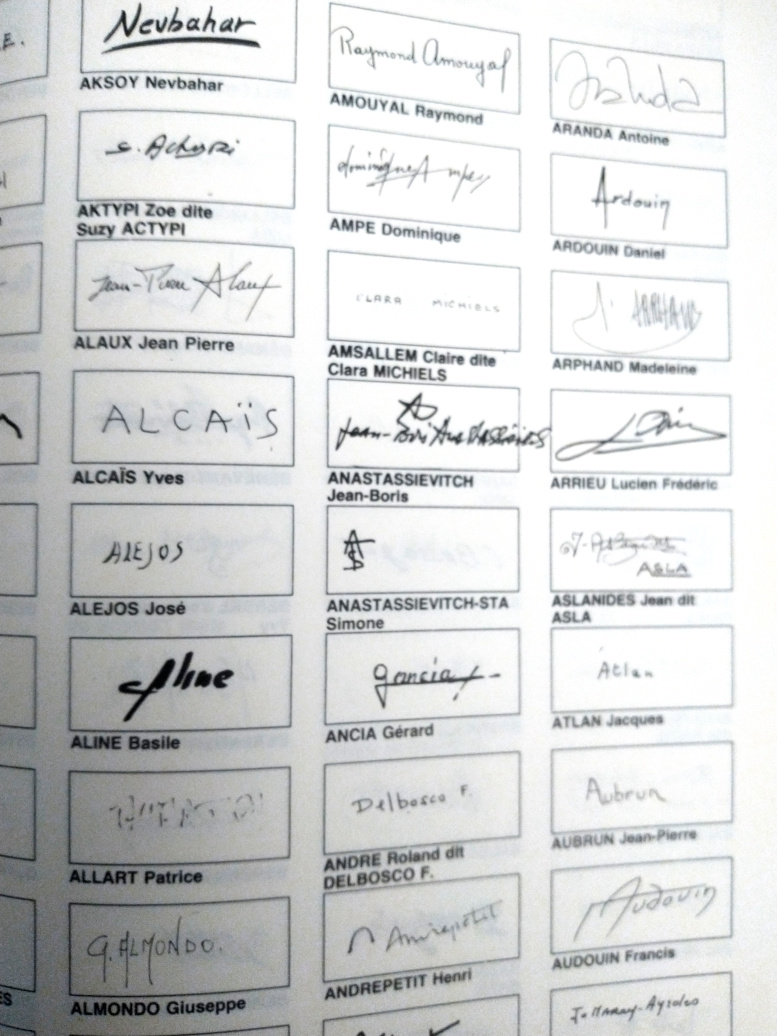 E.
Nevbahar
AKSOY Nevbahar
AKTYPI Zoe dite
Suzy ACTYPI
Jean-Pierre Alaux
ALAUX Jean Pierre
ALCAÏS
ALCAÏS Yves
ALEJOS
ALEJOS José
Aline
ALINE Basile
ALLART Patrice
G. ALMONDO.
ALMONDO Giuseppe
Raymond Amouyal
AMOUYAL Raymond
dominique Ampe
AMPE Dominique
CLARA MICHIELS
AMSALLEM Claire dite
Clara MICHIELS
ANASTASSIEVITCH
Jean-Boris
ANASTASSIEVITCH-STA
Simone
gancia
ANCIA Gérard
Delbosco F.
ANDRE Roland dit
DELBOSCO F.
Andrepetit
ANDREPETIT Henri
ARANDA Antoine
Ardouin
ARDOUIN Daniel
ARPHAND
ARPHAND Madeleine
ARRIEU Lucien Frédéric
ASLA
ASLANIDES Jean dit
ASLA
Atlan
ATLAN Jacques
Aubrun
AUBRUN Jean-Pierre
Audouin
AUDOUIN Francis